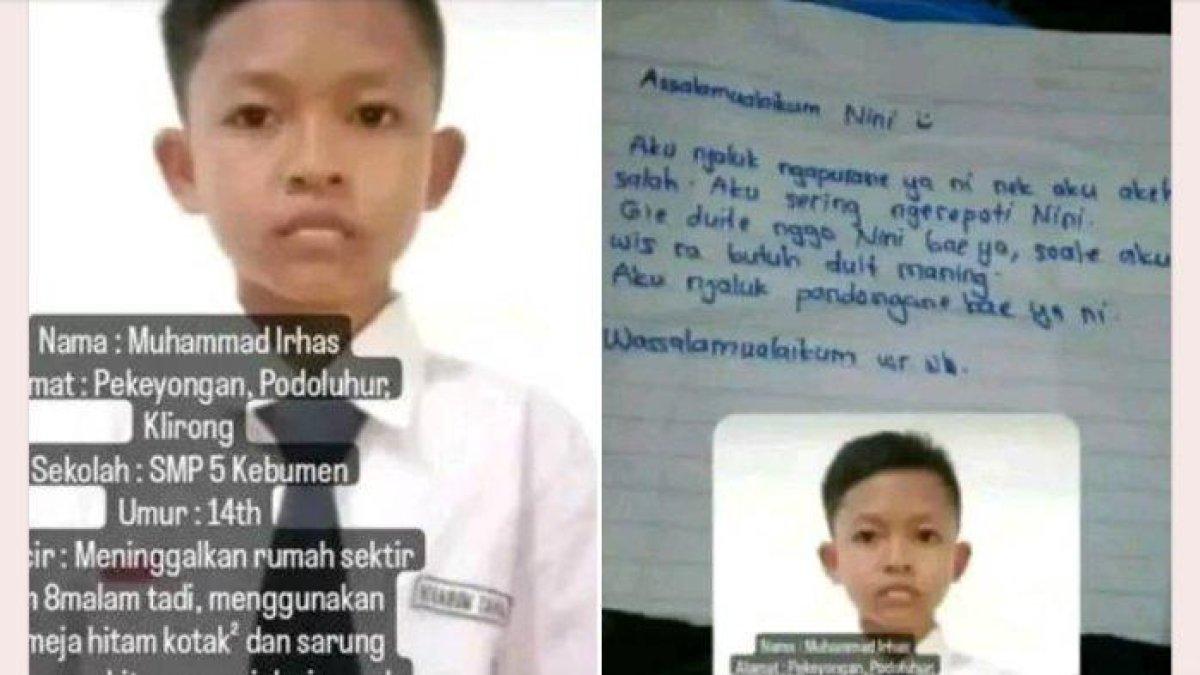 Nama : Muhammad Irhas
mat : Pekeyongan, Podoluhur,
Klirong
Sekolah : SMP 5 Kebumen
Umur : 14th
ir : Meninggalkan rumah sektir
8malam tadi, menggunakan
meja hitam kotak² dan sarung
Assalamualaikum Nini
Aku njaluk ngapurane ya ni nek aku akeh
salah. Aku sering ngerepoti Nini.
Gie duite nggo Nini bae ya, soale aku
wis ra butuh duit maning.
Aku njaluk pandongane bae ya ni.
Wassalamualaikum wr wb.
Nama : Muhammad Irhas
Alamat : Pekeyongan, Podoluhur,